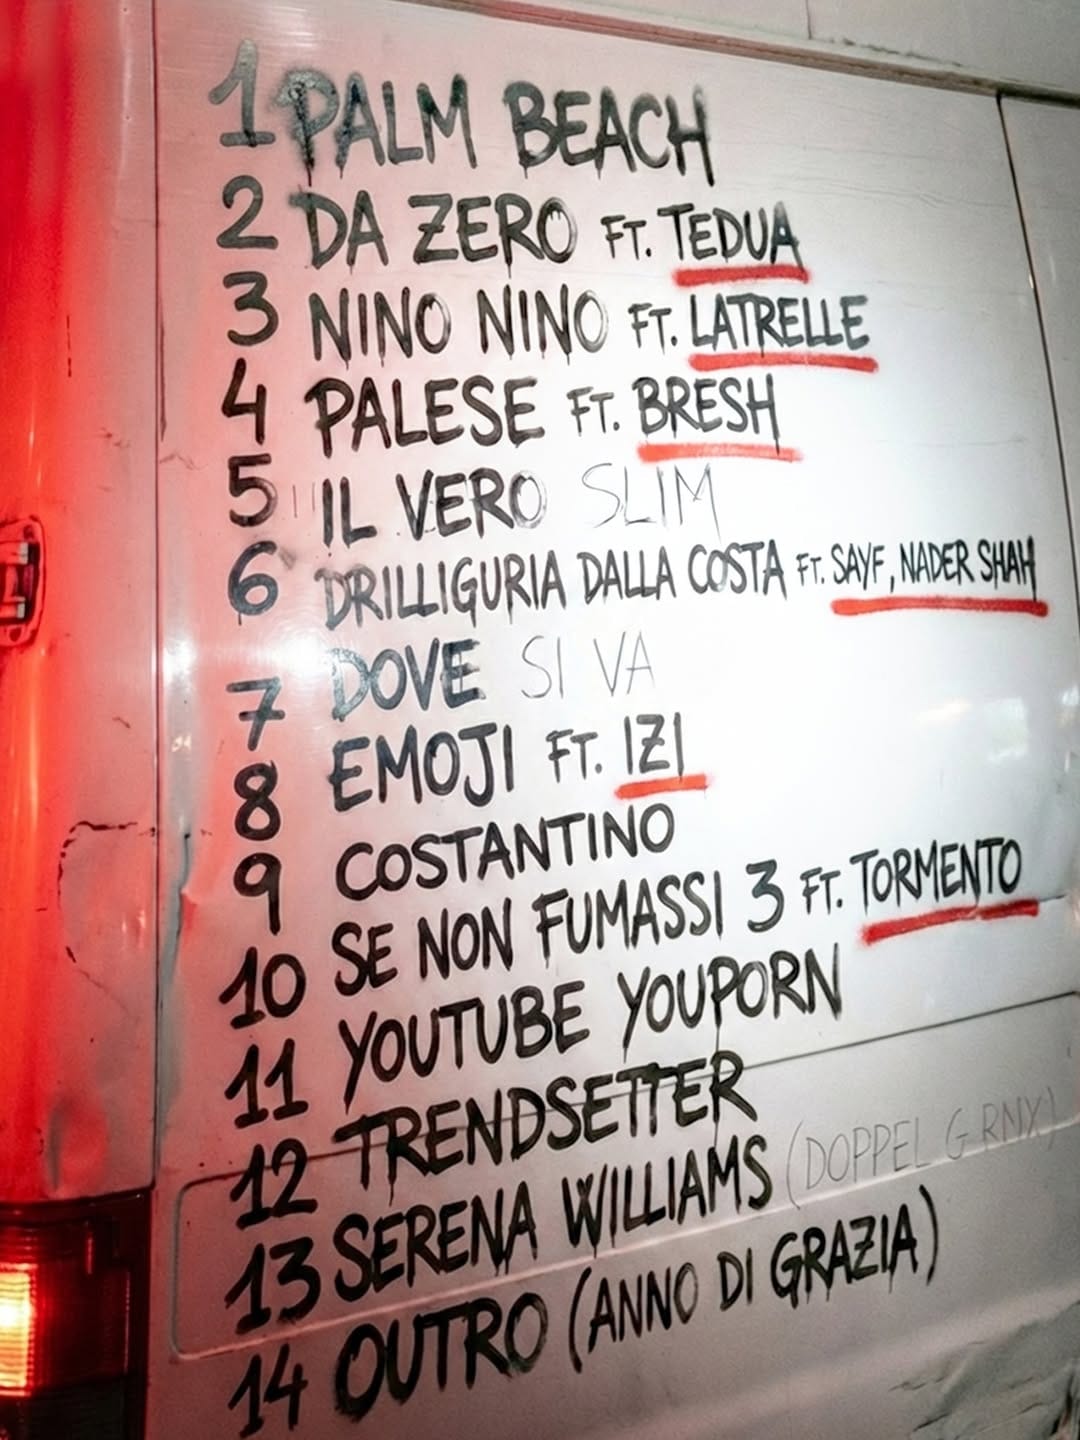 1 PALM BEACH
2 DA ZERO FT. TEDUA
3 NINO NINO FT. LATRELLE
4 PALESE FT. BRESH
5 IL VERO SLIM
6 DRILLIGURIA DALLA COSTA FT. SAYF, NADER SHAH
7 DOVE SI VA
8 EMOJI FT. IZI
9 COSTANTINO
10 SE NON FUMASSI 3 FT. TORMENTO
11 YOUTUBE YOUPORN
12 TRENDSETTER
13 SERENA WILLIAMS (DOPPEL G RNX)
14 OUTRO (ANNO DI GRAZIA)